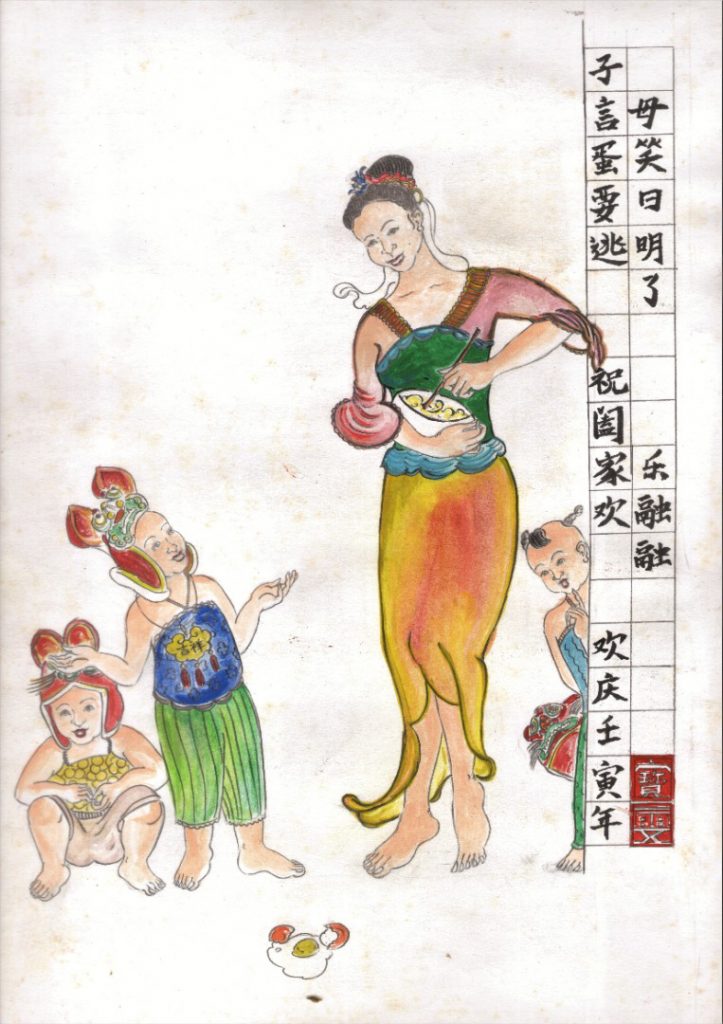 子言蛋要逃
母笑曰明了
祝阖家欢
乐融融
欢庆壬寅年
寶雯
吉祥